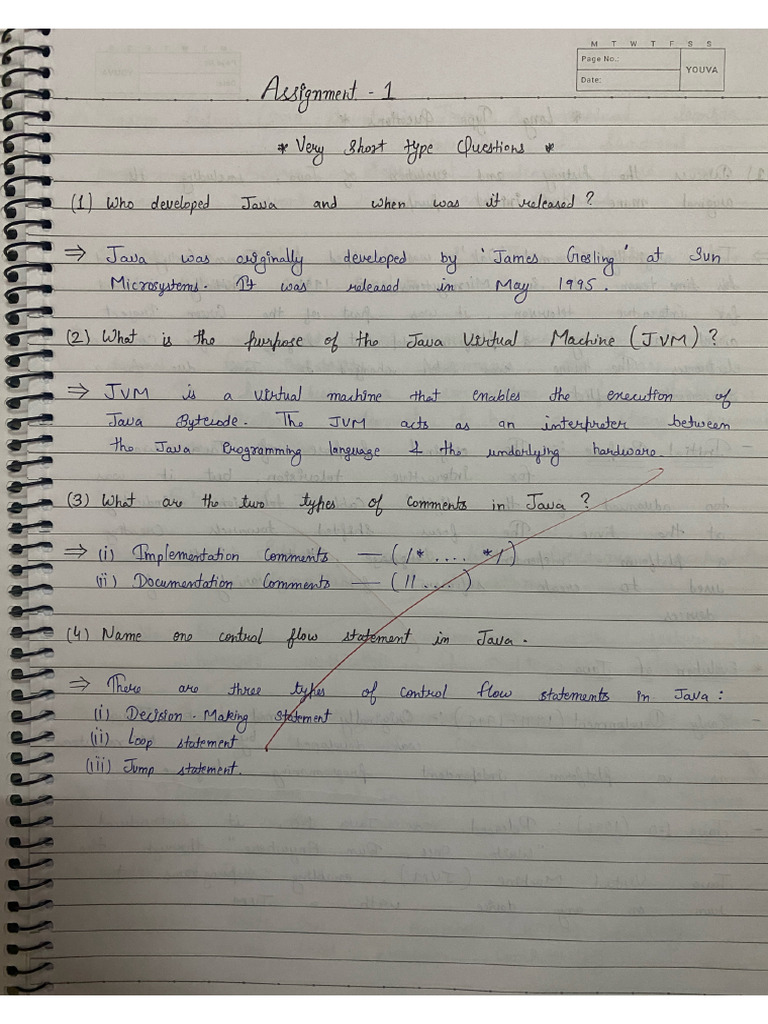 M T W T F S S
Page No.:
YOUVA
Date:
Assignment - 1
* Very Short Type Questions *
(1) Who developed Java and when was it released?
⇒ Java was originally developed by 'James Gosling' at Sun
Microsystems. It was released in May 1995.
(2) What is the purpose of the Java Virtual Machine (JVM)?
⇒ JVM is a virtual machine that enables the execution of
Java Bytecode. The JVM acts as an interpreter between
the Java Programming language & the underlying hardware.
(3) What are the two types of comments in Java?
⇒ (i) Implementation Comments — (/* .... */)
(ii) Documentation Comments — (// ....)
(4) Name one control flow statement in Java.
⇒ There are three types of control flow statements in Java:
(i) Decision-Making Statement
(ii) Loop statement
(iii) Jump statement.